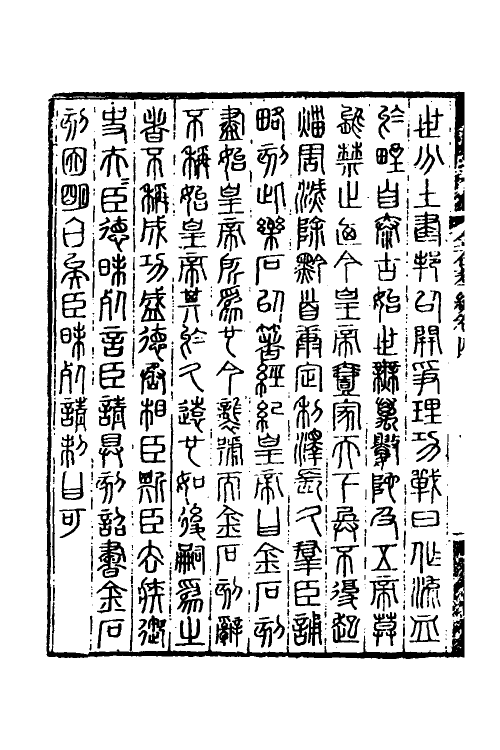 世分土建邦以開爭理功戰日作流血
於野自泰古始世無萬數陀及五帝莫
能禁止迺今皇帝壹家天下兵不復起
災害滅除黔首康定利澤長久群臣誦
略刻此樂石以著經紀皇帝曰金石刻
盡始皇帝所為也今襲號而金石刻辭
不稱始皇帝其於久遠也如後嗣為之
者不稱成功盛德丞相臣斯臣去疾御
史夫臣德昧死言臣請具刻詔書金石
刻因明白矣臣昧死請制曰可